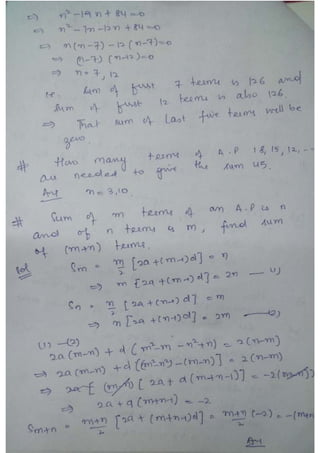 ⇒ n² - 19n + 84 = 0
⇒ n² - 7n - 12n + 84 = 0
⇒ n(n-7) - 12(n-7) = 0
⇒ (n-7) (n-12) = 0
⇒ n = 7, 12
Sum of first 7 terms is 126 and
sum of first 12 terms is also 126.
⇒ That sum of last five terms will be
zero.
# How many terms of A.P 18, 15, 12, ...
are needed to give the sum 45.
Ans n = 3, 10.
# Sum of m terms of an A.P is n
and of n terms is m, find sum
of (m+n) terms.
Sol Sm = m/2 [2a + (m-1)d] = n
⇒ m [2a + (m-1)d] = 2n — (1)
Sn = n/2 [2a + (n-1)d] = m
⇒ n [2a + (n-1)d] = 2m — (2)
(1) - (2)
2a(m-n) + d(m² - m - n² + n) = 2(n-m)
⇒ 2a(m-n) + d[(m²-n²) - (m-n)] = 2(n-m)
⇒ (m-n) [2a + d(m+n-1)] = -2(m-n)
⇒ 2a + d(m+n-1) = -2
Sm+n = m+n/2 [2a + (m+n-1)d] = m+n/2 (-2) = -(m+n
Ans